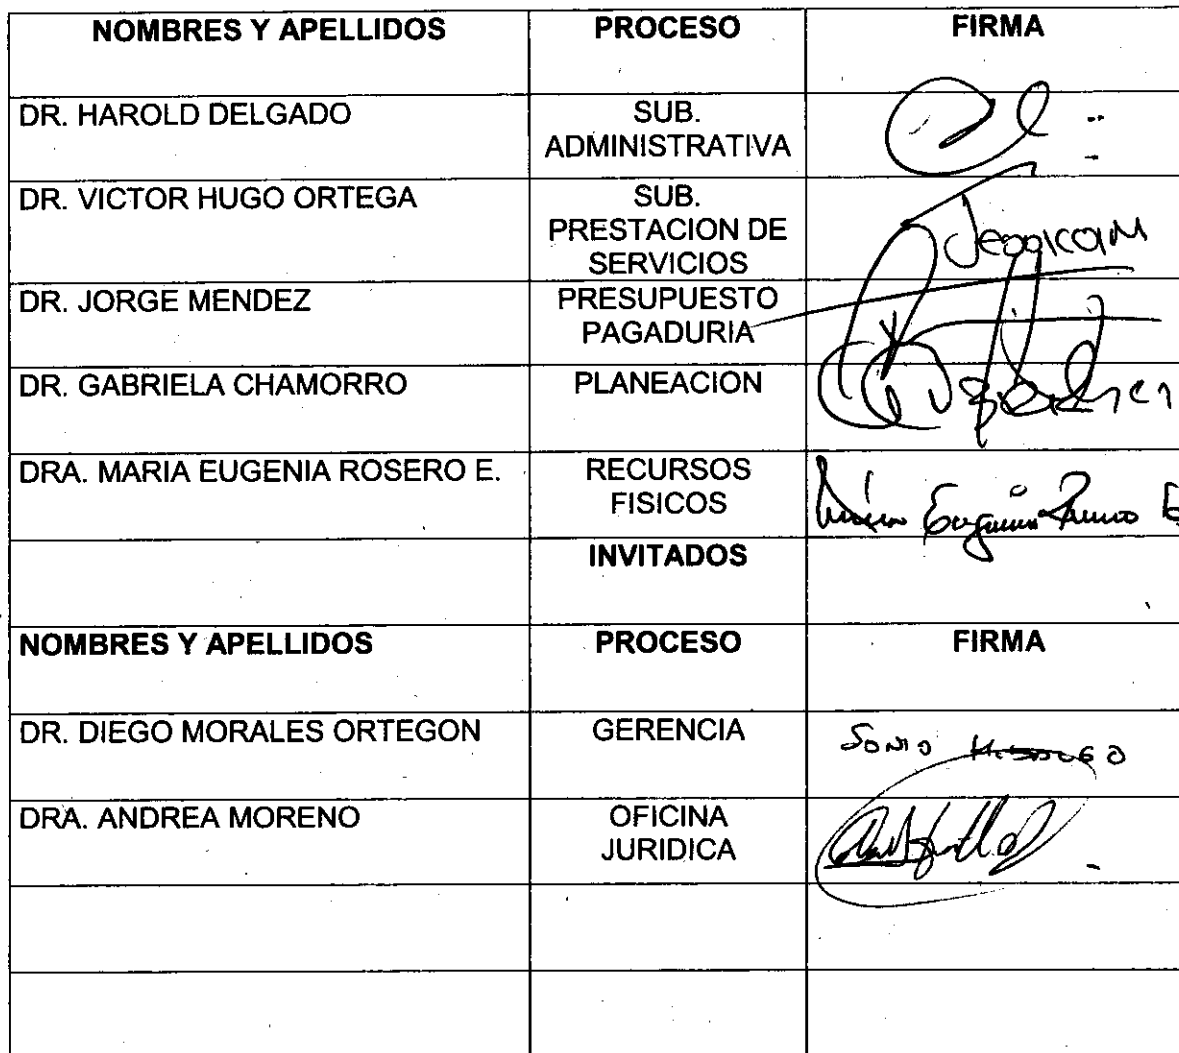 NOMBRES Y APELLIDOS PROCESO FIRMA
DR. HAROLD DELGADO SUB.
ADMINISTRATIVA
DR. VICTOR HUGO ORTEGA SUB.
PRESTACION DE
SERVICIOS
DR. JORGE MENDEZ PRESUPUESTO
PAGADURIA
DR. GABRIELA CHAMORRO PLANEACION
DRA. MARIA EUGENIA ROSERO E. RECURSOS
FISICOS
INVITADOS
NOMBRES Y APELLIDOS PROCESO FIRMA
DR. DIEGO MORALES ORTEGON GERENCIA
DRA. ANDREA MORENO OFICINA
JURIDICA